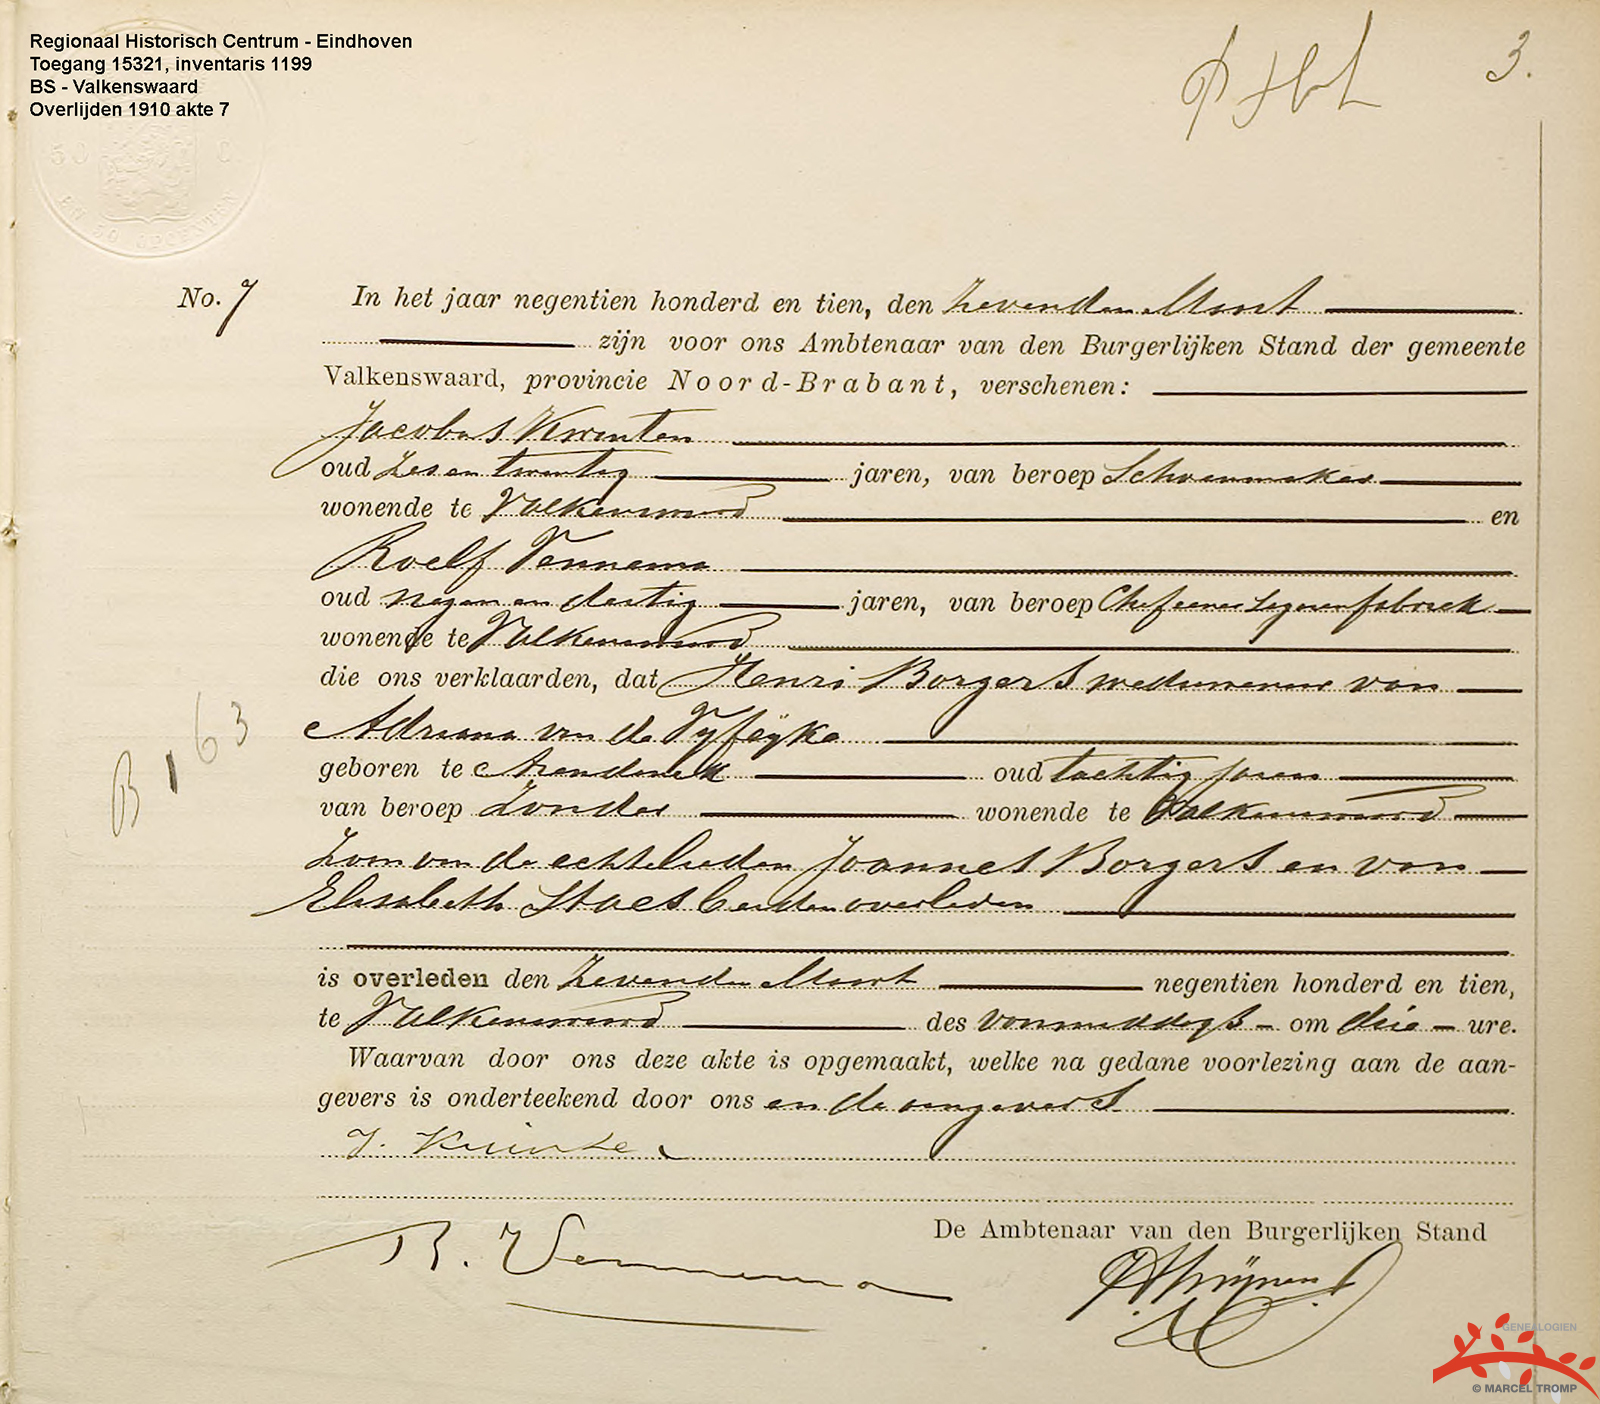 Regionaal Historisch Centrum - Eindhoven
Toegang 15321, inventaris 1199
BS - Valkenswaard
Overlijden 1910 akte 7
3.
50 C
EN 50 OPCENTEN
No. 7 In het jaar negentien honderd en tien, den zevenden Maart
zijn voor ons Ambtenaar van den Burgerlijken Stand der gemeente
Valkenswaard, provincie Noord-Brabant, verschenen:
Jacobus Kwinten
oud zes en twintig jaren, van beroep Schoenmaker
wonende te Valkenswaard en
Roelf Vennema
oud negen en dertig jaren, van beroep Chef eener sigarenfabriek
wonende te Valkenswaard
die ons verklaarden, dat Henri Borgers weduwenaar van
Adriana van de Vyfeyke
geboren te Arendonck oud tachtig jaren
van beroep Zonder wonende te Valkenswaard
Zoon van de echtelieden Joannes Borgers en van
Elisabeth Staes beiden overleden
is overleden den zevenden Maart negentien honderd en tien,
te Valkenswaard des voormiddags om drie ure.
Waarvan door ons deze akte is opgemaakt, welke na gedane voorlezing aan de aan-
gevers is onderteekend door ons en de aangevers
B 163
R. Vennema
De Ambtenaar van den Burgerlijken Stand
GENEALOGIEN
© MARCEL TROMP